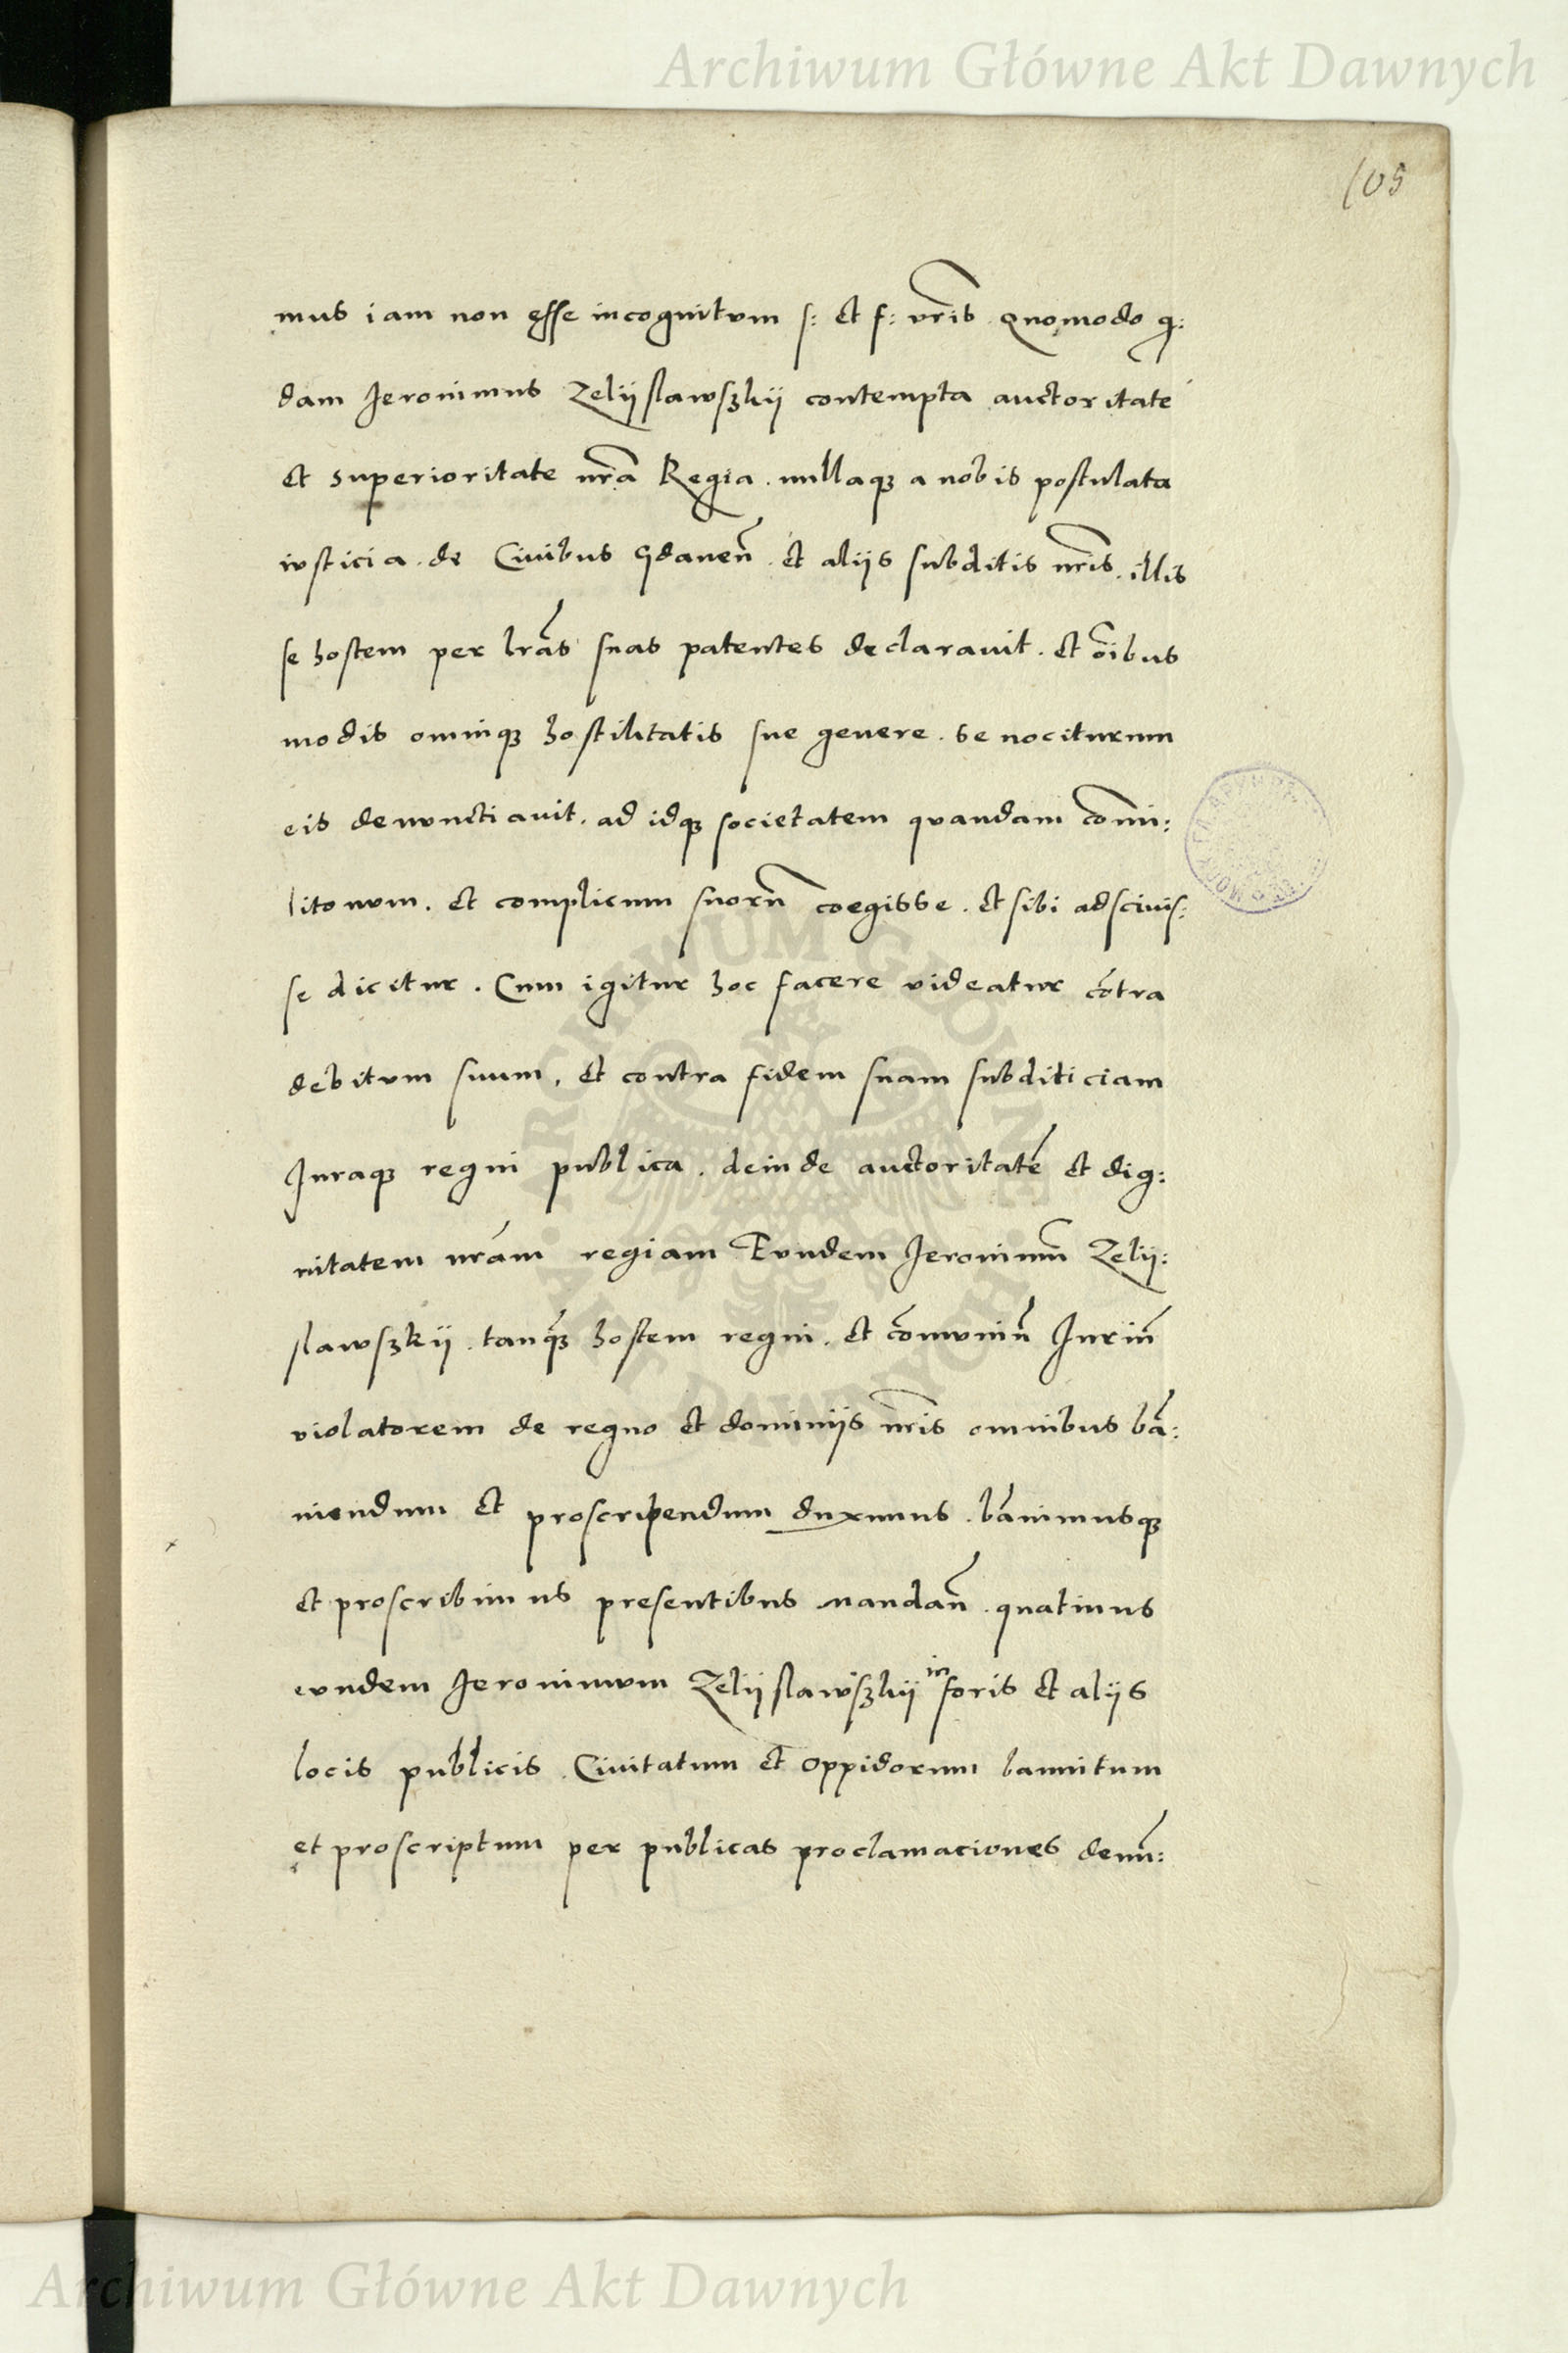 Archiwum Główne Akt Dawnych
105
mus iam non esse incognitum s: et f: vr̃is. Quomodo q:
dam Jeronimus Zelijslawszkij contempta auctoritate
et superioritate nr̃a Regia. nullaqꝫ a nobis postulata
iusticia. de Ciuibus Gdaneñ. et alijs subditis nr̃is. illis
se hostem per lr̃as suas patentes declarauit. et õibus
modis omniqꝫ hostilitatis sue genere. se nociturum
eis denunctiauit. ad idqꝫ societatem quandam com̃i:
litonum. et complicum suorũ coegisse. et sibi adsciuis:
se dicitur. Cum igitur hoc facere videatur cõtra
debitum suum, et contra fidem suam subditiciam
Juraqꝫ regni publica. deinde auctoritatẽ et dig:
nitatem nr̃am regiam Eundem Jeronimũ Zelij:
slawszkij. tanq̃ꝫ hostem regni. et cõmuniũ Juriũ
violatorem de regno et dominijs nr̃is omnibus bã:
niendum et proscribendum duximus. bãnimusqꝫ
et proscribimus presentibus mandañ. quatinus
eundem Jeronimum Zelijslawszkij in foris et alijs
locis publicis Ciuitatum et oppidorum bannitum
et proscriptum per publicas proclamaciones denũ:
Archiwum Główne Akt Dawnych